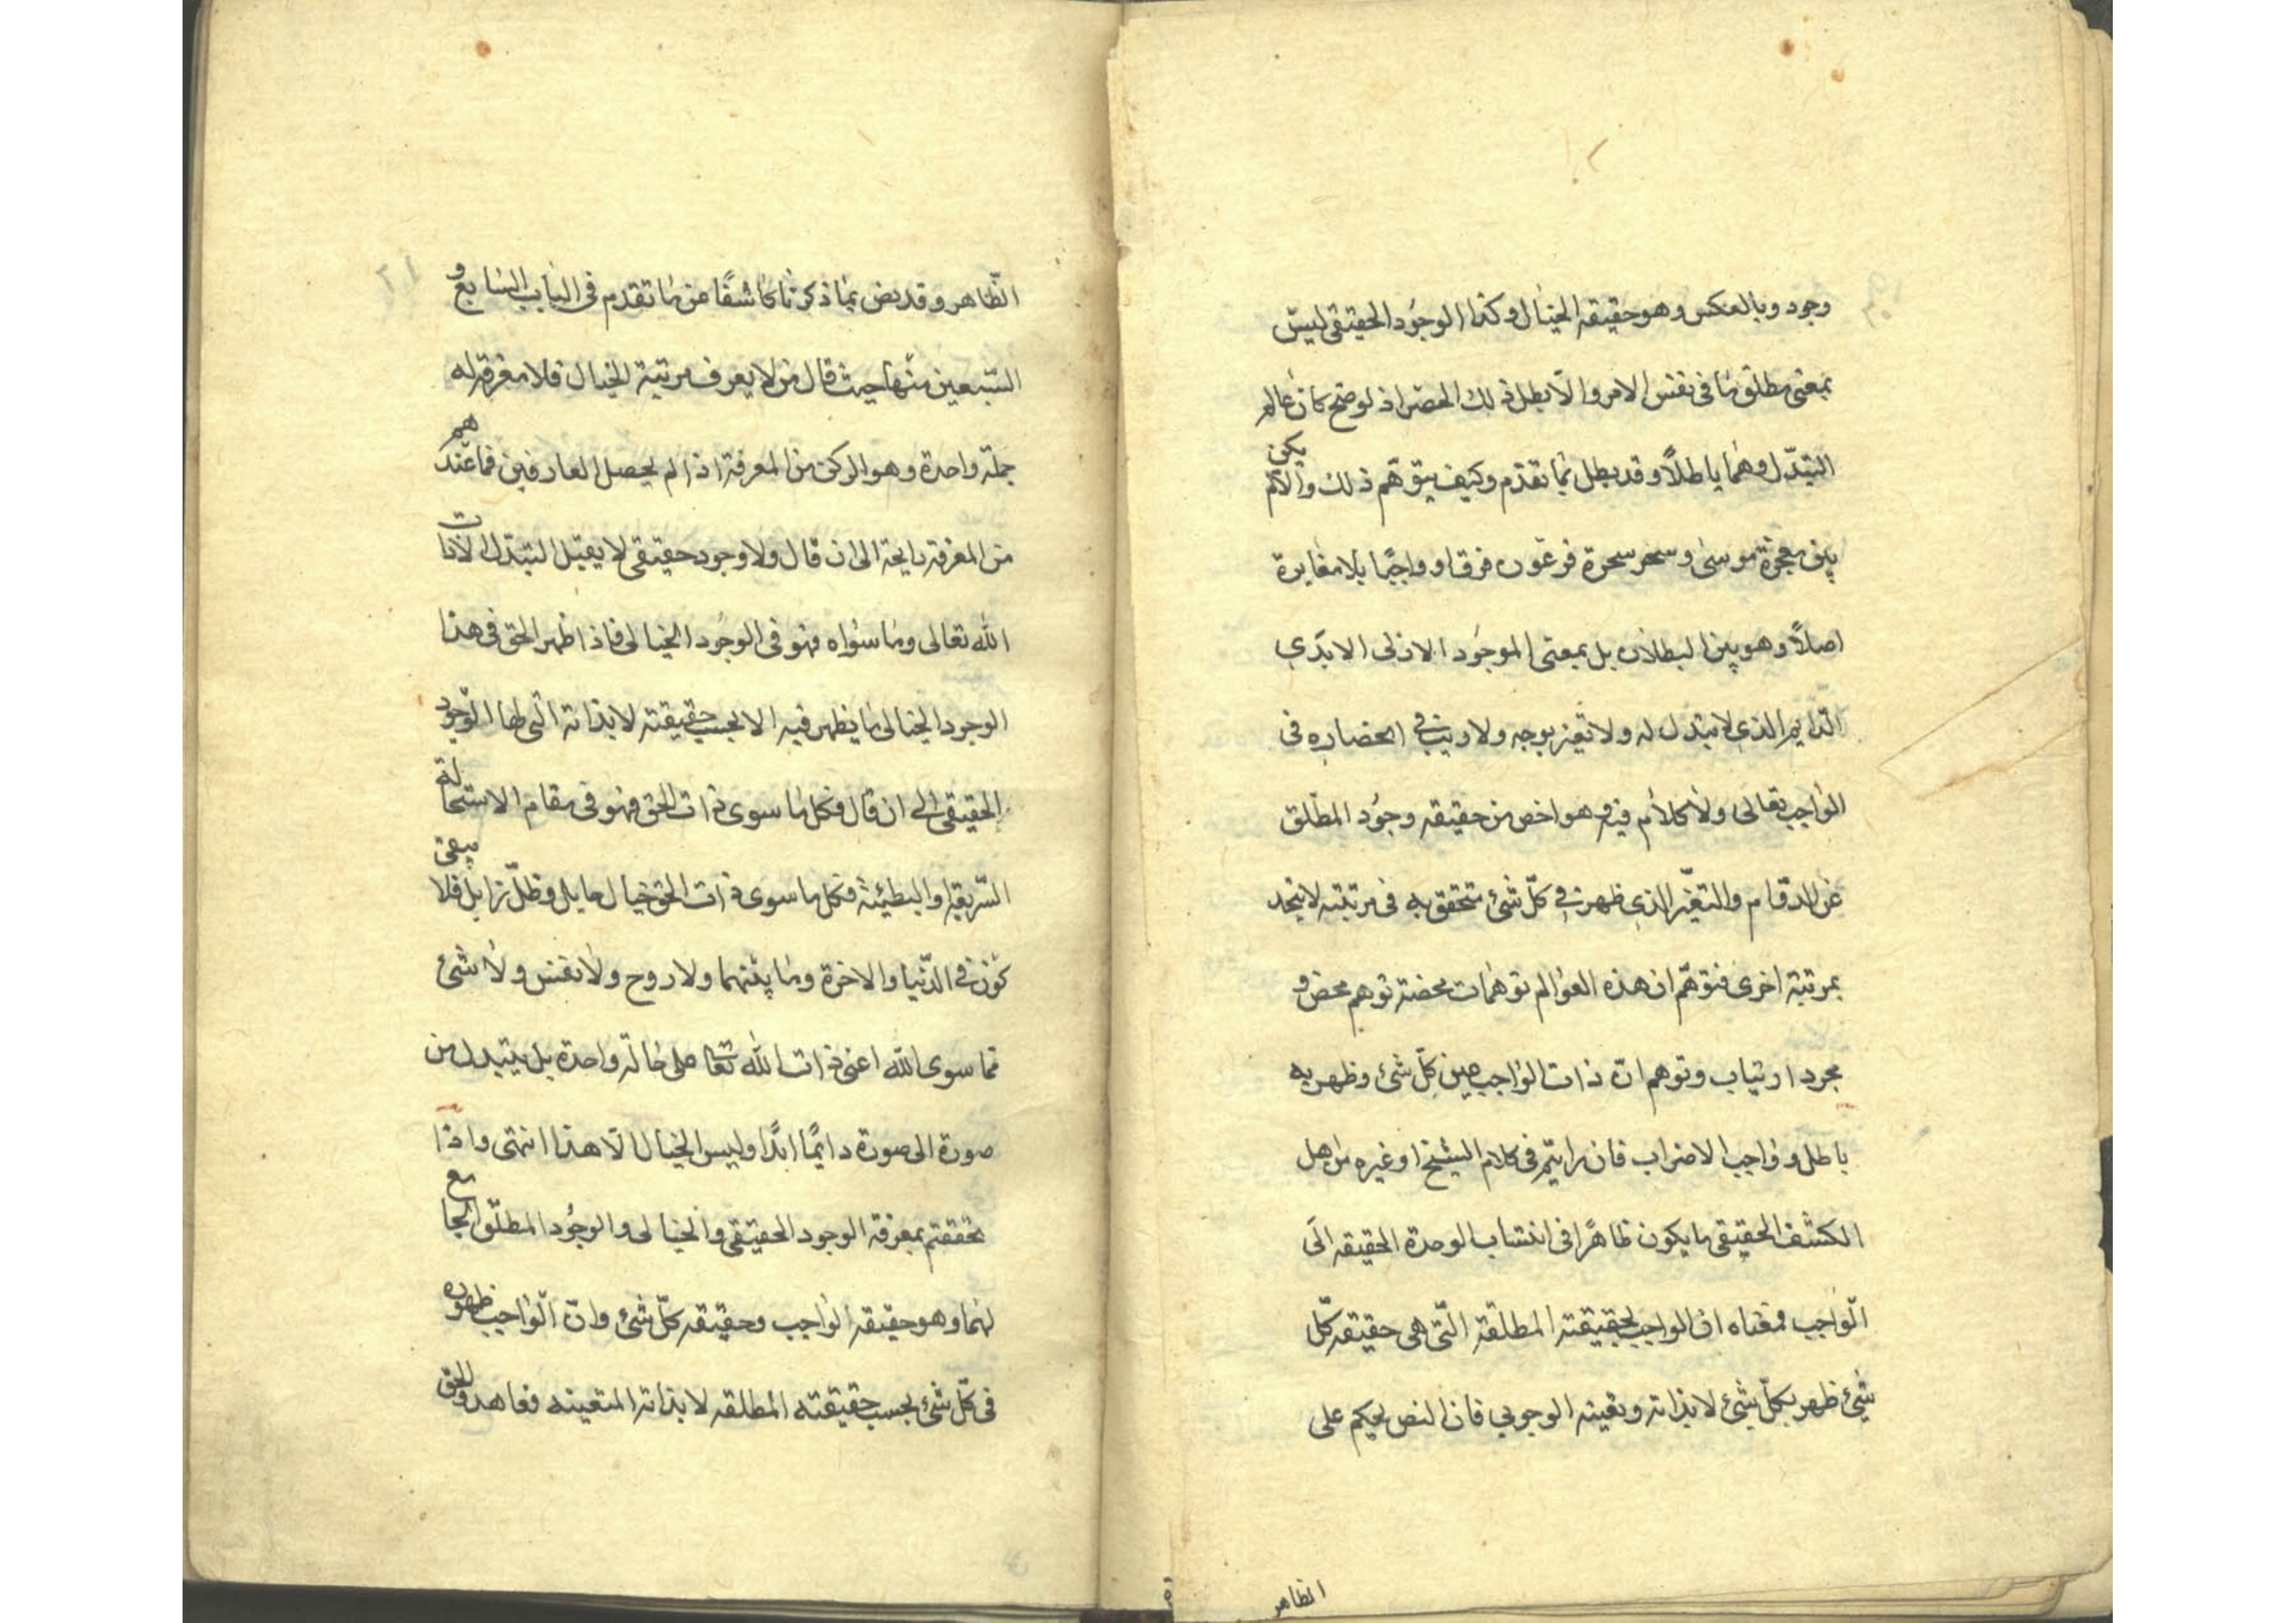 وجود وبالعكس وهو حقيقة الخيال وكذا الوجود الحقيقى ليس
بمعنى مطلق ما فى نفس الامر والا بطل ذلك الحصر اذ لو صح كان عالم
التبدّل وهما باطلاً وقد بطل بما تقدّم وكيف يتوهّم ذلك والا لم يكن
بين معجزة موسى وسحر سحرة فرعون فرقا وواجبًا بلا مغايرة
اصلاً وهو بين البطلان بل بمعنى الموجود الازلى الابدي
الدّايم الذي لا تبدل له ولا تغيّر بوجه ولا ريب فى انحصاره فى
الواجب تعالى ولا كلام فيه وهو اخص من حقيقه وجود المطلق
عن الدوام والتغيّر الذي ظهر فى كلّ شئ تحقق به فى مرتبته لا يتحد
بمرتبة اخرى فتوهّم ان هذه العوالم توهمات محضة توهم محض و
مجرد ارتياب وتوهم انّ ذات الواجب عين كلّ شئ وظهر به
باطل وواجب الاضراب فان رايتم فى كلام الشيخ او غيره من اهل
الكشف الحقيقى ما يكون ظاهرًا فى انتساب الوحدة الحقيقه الى
الواجب فمعناه ان الواجب بحقيقته المطلقة التى هى حقيقه كلّ
شئ ظهر بكلّ شئ لا بذاته وتعينه الوجوبي فان النص يحكم على
الظاهر
الظّاهر وقد نص بما ذكرنا كاشفًا عن ما تقدم فى الباب السابع و
السّبعين منها حيث قال من لا يعرف مرتبة الخيال فلا معرفة له
جملة واحدة وهو الركن من المعرفة اذا لم يحصل العارفين فما عندهم
من المعرفة رايحة الى ان قال ولا وجود حقيقى لا يقبل التبدّل الا ذات
الله تعالى وما سواه فهو فى الوجود الخيالى فاذا ظهر الحق فى هذا
الوجود الخيالى ما يظهر فيه الا بحسب حقيقته لا بذاته التى لها الوجود
الحقيقى الى ان قال فكل ما سوى ذات الحق فهو فى مقام الاستحالة
السّريعة او البطيئة فكل ما سوى ذات الحق خيال حايل وظلّ زايل فلا يبقى
كون فى الدّنيا والاخرة وما بينهما ولا روح ولا نفس ولا شئ
مما سوى الله اعنى ذات الله تعا على حالة واحدة بل يتبدل من
صورة الى صورة دايمًا ابدًا وليس الخيال الّا هذا انتهى واذا
تحققتم بمعرفة الوجود الحقيقى والخيالى والوجود المطلق الجامع
لهما وهو حقيقه الواجب وحقيقه كلّ شئ وانّ الواجب ظهوره
فى كلّ شئ بحسب حقيقته المطلقه لا بذاته المتعينه فعاهدوا الحق